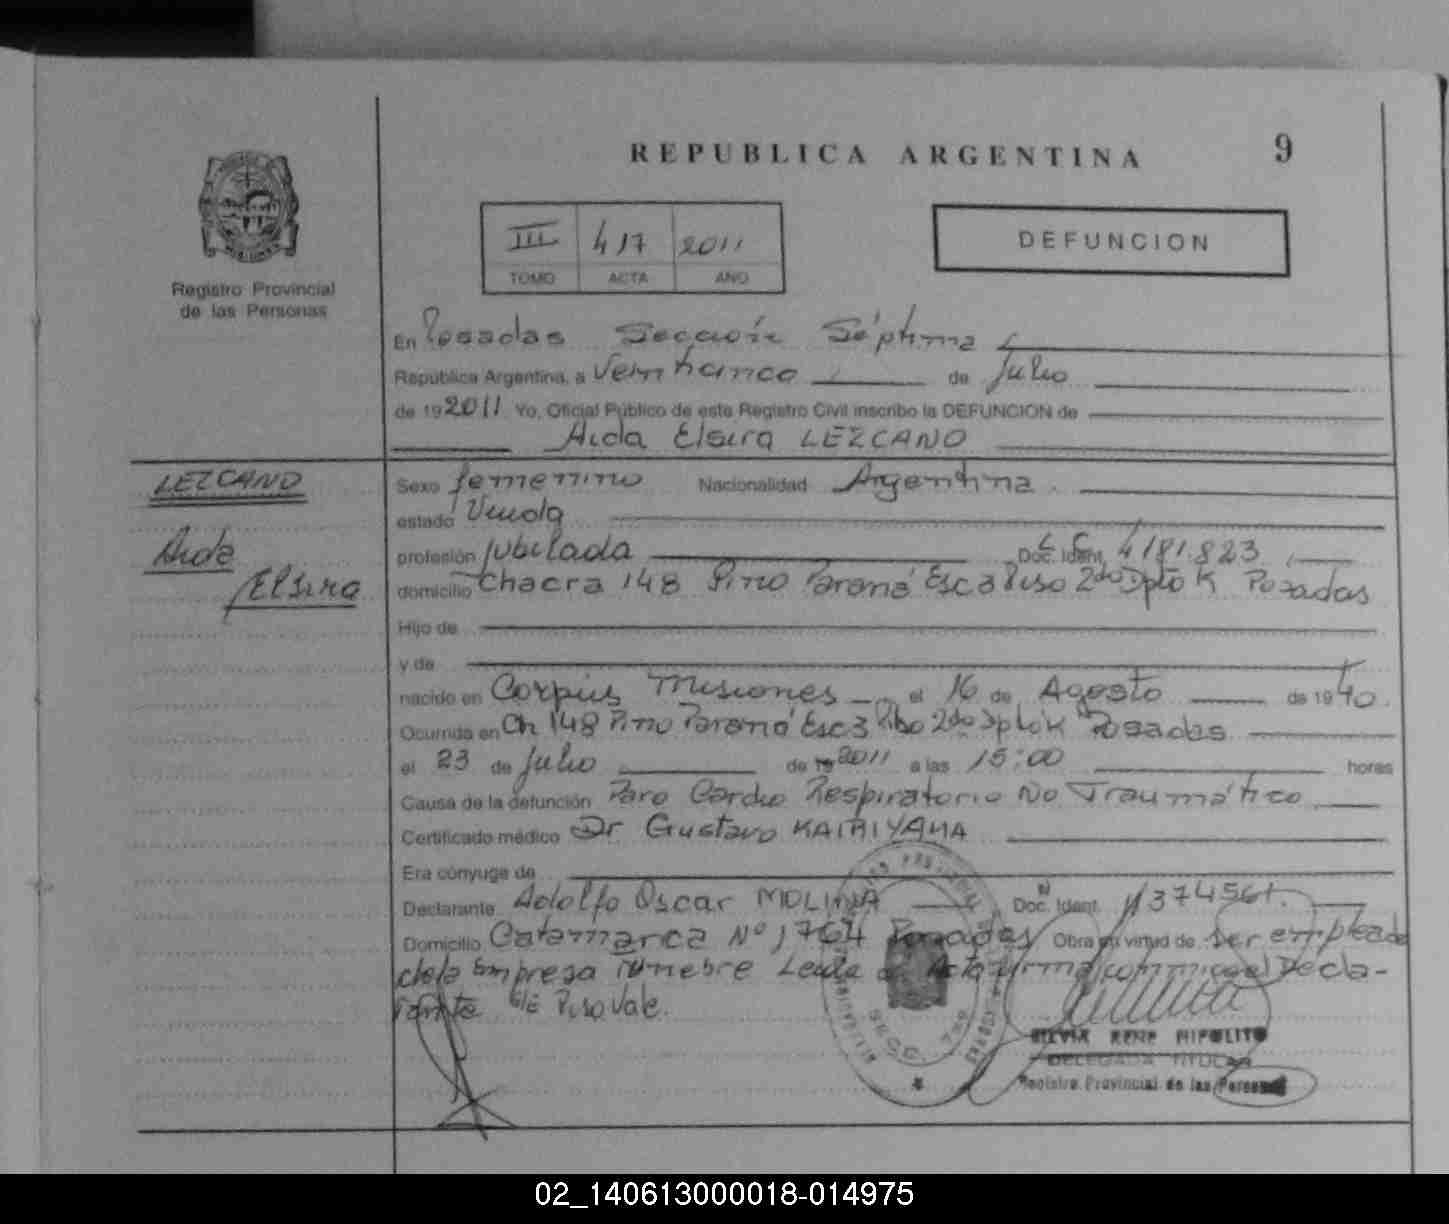 REPUBLICA ARGENTINA 9
III 417 2011
TOMO ACTA AÑO
DEFUNCION
Registro Provincial
de las Personas
En Posadas Sección Séptima
República Argentina, a Veinticinco de Julio
de 192011 Yo, Oficial Público de este Registro Civil inscribo la DEFUNCION de
Aida Elsira LEZCANO
LEZCANO
Aida
Elsira
Sexo femenino Nacionalidad Argentina.
estado Viuda
profesión jubilada Doc. Ident. L C 4181.823
domicilio Chacra 148 Pino Paraná Esc 3 Piso 2do Dpto K Posadas
Hijo de
y de
nacido en Corpus Misiones el 16 de Agosto de 1940.
Ocurrida en Ch 148 Pino Paraná Esc 3 Piso 2do Dpto K Posadas
el 23 de Julio de 19 2011 a las 15:00 horas
Causa de la defunción Paro Cardio Respiratorio No Traumático
Certificado médico Dr. Gustavo KAIRIYAMA
Era cónyuge de
Declarante Adolfo Oscar MOLINA Doc. Ident.
Domicilio Catamarca Nº 1764 Posadas Obra en virtud de Ser empleado
de la Empresa fúnebre Leida el Acta firma conmigo el Decla-
rante Piso Vale.
SECC. 7ma
SILVIA RENE HIPOLITO
DELEGADA TITULAR
Registro Provincial de las Personas
02_140613000018-014975